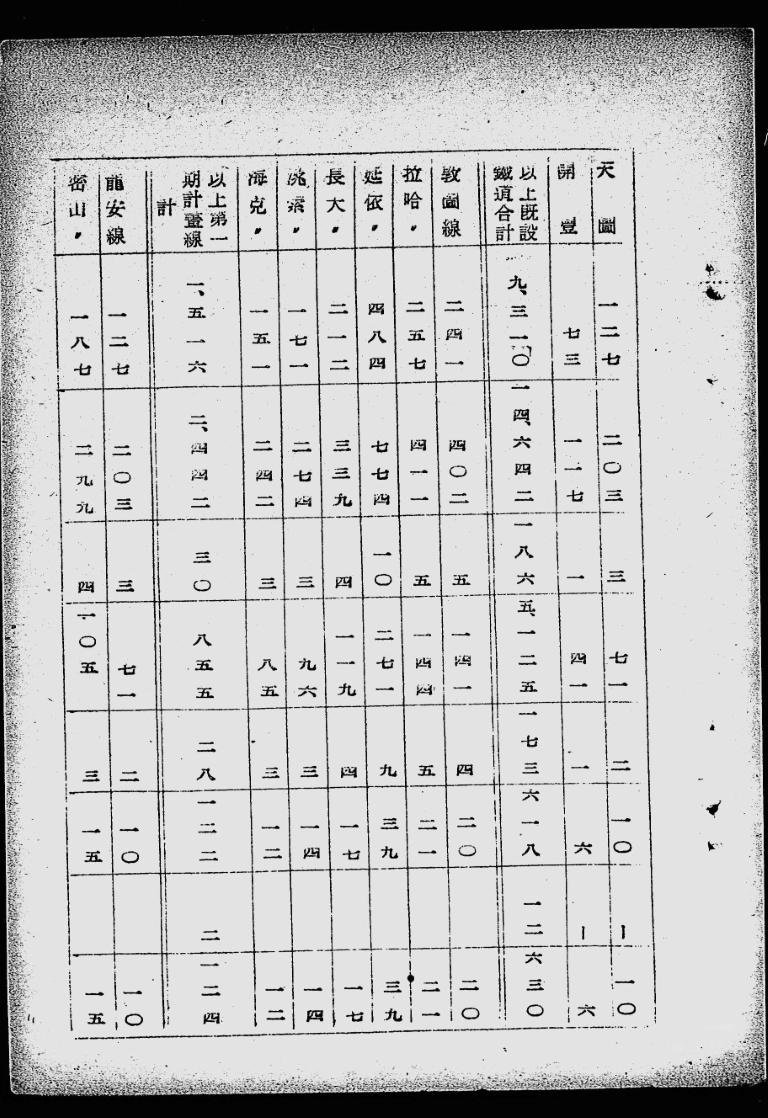 天圖 一二七 二〇三 三 七一 二 一〇 ー 一〇
開豐 七三 一一七 一 四一 一 六 ー 六
以上既設鐵道合計 九、三一〇 一四、六四二 一八六 五、一二五 一七三 六一八 一二 六三〇
敦圖線 二四一 四〇二 五 一四一 四 二〇 二〇
拉哈〃 二五七 四一一 五 一四四 五 二一 二一
延依〃 四八四 七七四 一〇 二七一 九 三九 三九
長大〃 二一二 三三九 四 一一九 四 一七 一七
洮索〃 一七一 二七四 三 九六 三 一四 一四
海克〃 一五一 二四二 三 八五 三 一二 一二
以上第一期計畫線計 一、五一六 二、四四二 三〇 八五五 二八 一二二 二 一二四
龍安線 一二七 二〇三 三 七一 二 一〇 一〇
密山〃 一八七 二九九 四 一〇五 三 一五 一五